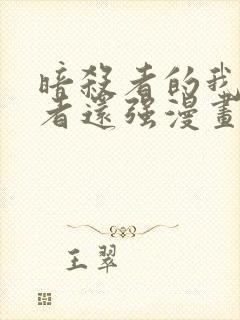 暗殺者的我
者還强漫畫
王翠